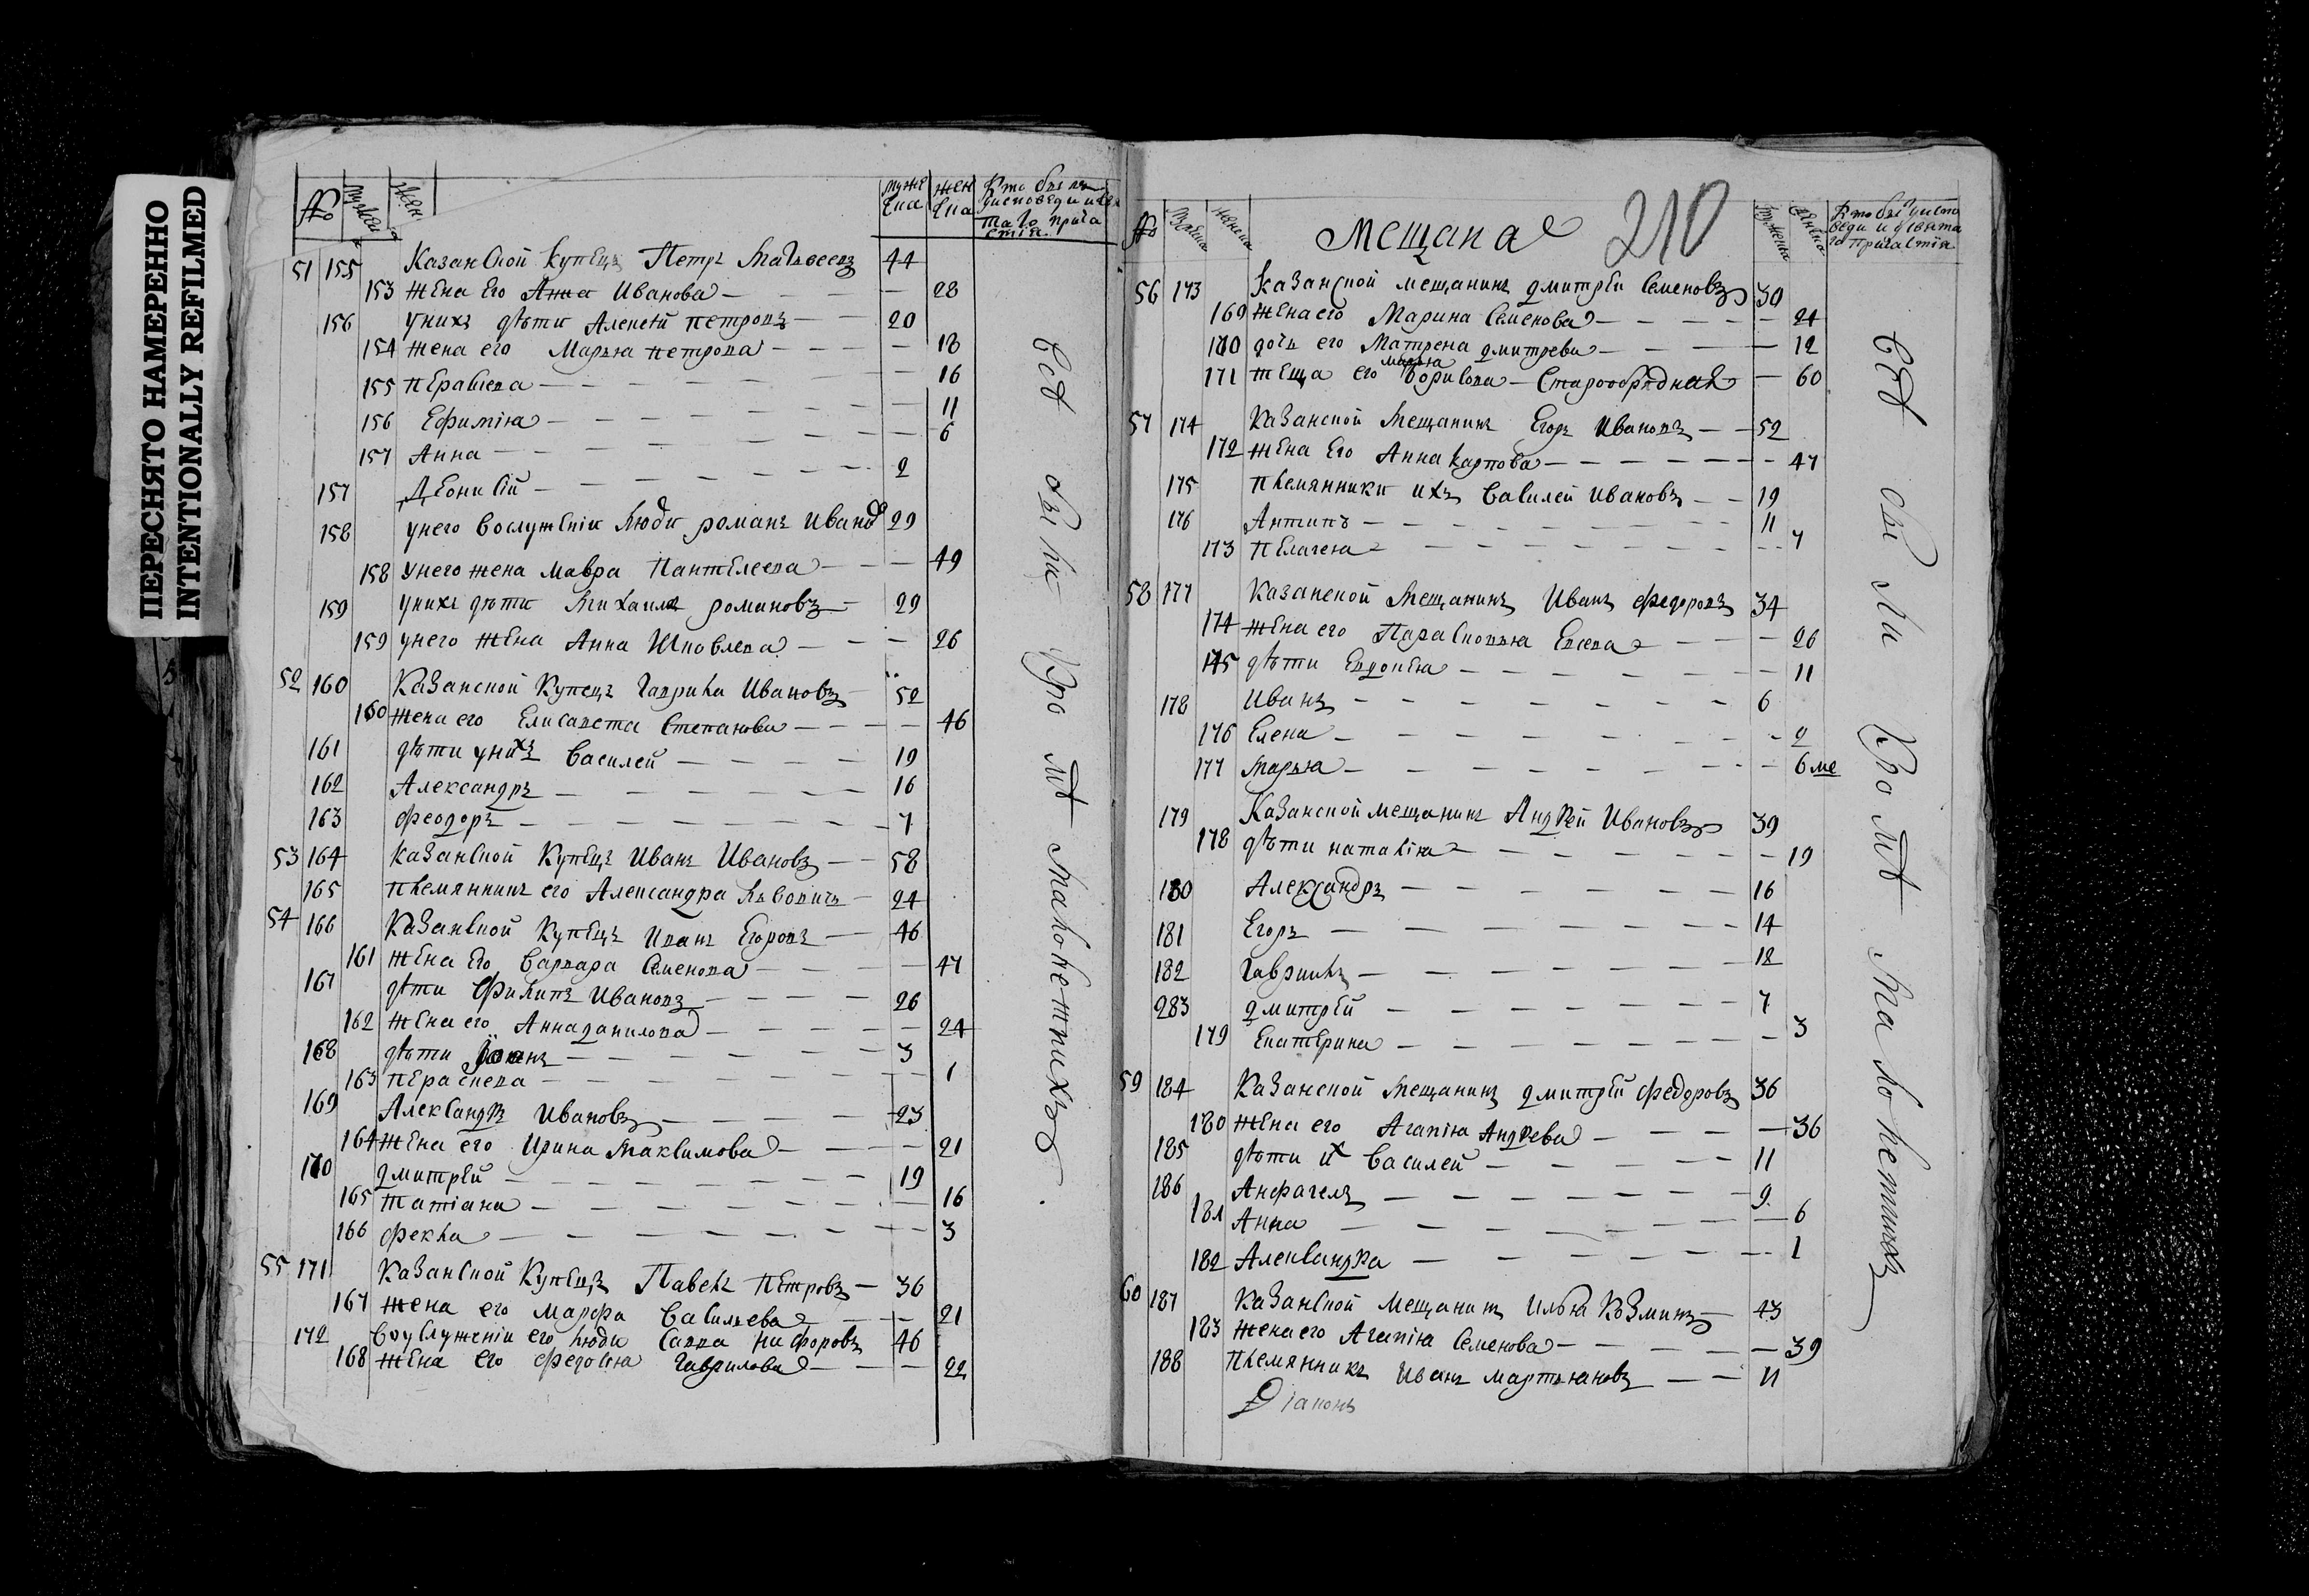 ПЕРЕСНЯТО НАМЕРЕННО
INTENTIONALLY REFILMED
№ мужеска женска мужеска женска Кто были у исповеди и свя таго прича стия
51 155 Казанской купецъ Петръ Матвеевъ 44
153 жена его Анна Иванова 28
156 у нихъ дѣти Алексѣй петровъ 20
154 жена его Марья петрова 18
155 перасъева 16
156 Ефимия 11
157 Анна 6
157 Деонисий 2
158 у него в служении люди романъ Иванов 29
158 у него жена мавра Пантелеева 49
159 у нихъ дѣти Михаила романовъ 29
159 у него жена Анна Шповлева 26
52 160 Казанской Купецъ Гаврила Ивановъ 52
160 жена его Елисавета Степанова 46
161 дѣти у нихъ Василей 19
162 Александръ 16
163 Феодоръ 7
53 164 Казанской Купецъ Иванъ Ивановъ 58
165 племянникъ его Александра Львовичъ 24
54 166 Казанской Купецъ Иванъ Егоровъ 46
161 жена его Варвара Семенова 47
167 дѣти Филипъ Ивановъ 26
162 жена его Анна данилова 24
168 дѣти Иоанъ 3
163 Пераскева 1
169 Александръ Ивановъ 23
164 жена его Ирина Максимова 21
170 дмитрей 19
165 татиана 16
166 фекла 3
55 171 Казанской Купецъ Павелъ Петровъ 36
167 жена его марфа Васильева 21
172 в служении его люди Савва никифоровъ 46
168 жена его федосия Гаврилова 22
Всѣ были кромѣ малолетнихъ
210
№ мужеска женска мещана мужеска женска Кто были у испо веди и у святa го причастия
56 173 казанской мещанинъ дмитрей Семеновъ 30
169 жена его Марина Семенова 24
170 дочь его Матрена дмитрева 12
марья
171 теща его борисова Старообрядная 60
57 174 Казанской Мещанинъ Егоръ Ивановъ 52
172 жена его Анна Карпова 47
175 племянники ихъ Василей Ивановъ 19
176 Антипъ 11
173 пелагея 7
58 177 Казанской Мещанинъ Иванъ Федоровъ 34
174 жена его Парасковья Евсева 26
175 дѣти Евдокея 11
178 Иванъ 6
176 Елена 2
177 марья 6 ме
179 Казанской мещанинъ Андрей Ивановъ 39
178 дѣти наталия 19
180 Александръ 16
181 Егоръ 14
182 Гаврилъ 12
283 дмитрей 7
179 Екатерина 3
59 184 Казанской Мещанинъ дмитрей Федоровъ 36
180 жена его Агапия Андрева 36
185 дѣти их Василей 11
186 Анфагелъ 9
181 Анна 6
182 Александра 1
60 187 Казанской Мещанинъ Илья Козминъ 43
183 жена его Агапия Семенова 39
188 племянникъ Иванъ мартьяновъ 11
Диаконъ
Всѣ были кромѣ малолетнихъ